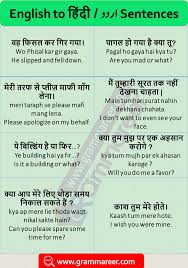 English to हिंदी / اردو Sentences
वह फिसल कर गिर गया।
Wo Phisal kar gir gaya.
He slipped and fell down.
पागल हो गया है क्या तू?
Pagal ho gaya hai kya tu?
Are you mad or what?
मेरी तरफ से प्लीज़ माफी माँग लेना।
meri taraph se plij maphi mang lena.
Please apologize on my behalf.
मैं तुम्हारी सूरत तक नहीं देखना चाहता।
Main tumhari surat nahin dekhana chahata.
I don't want to even see your face.
ये बिल्डिंग है या फिर..?
Ye building hai ya fir..?
Is it a building or what?
क्या तुम मुझ पर एक अहसान करोगे ?
kya tum mujh par ek ahasan karoge ?
Can you do me a favor?
क्या आप मेरे लिए थोड़ा समय निकाल सकते हैं ?
kya ap mere lie thoda waqt nikal sakte hain?
Can you please spare some time for me?
काश तुम मेरे होते।
Kaash tum mere hote.
I wish you were mine.
www.grammareer.com